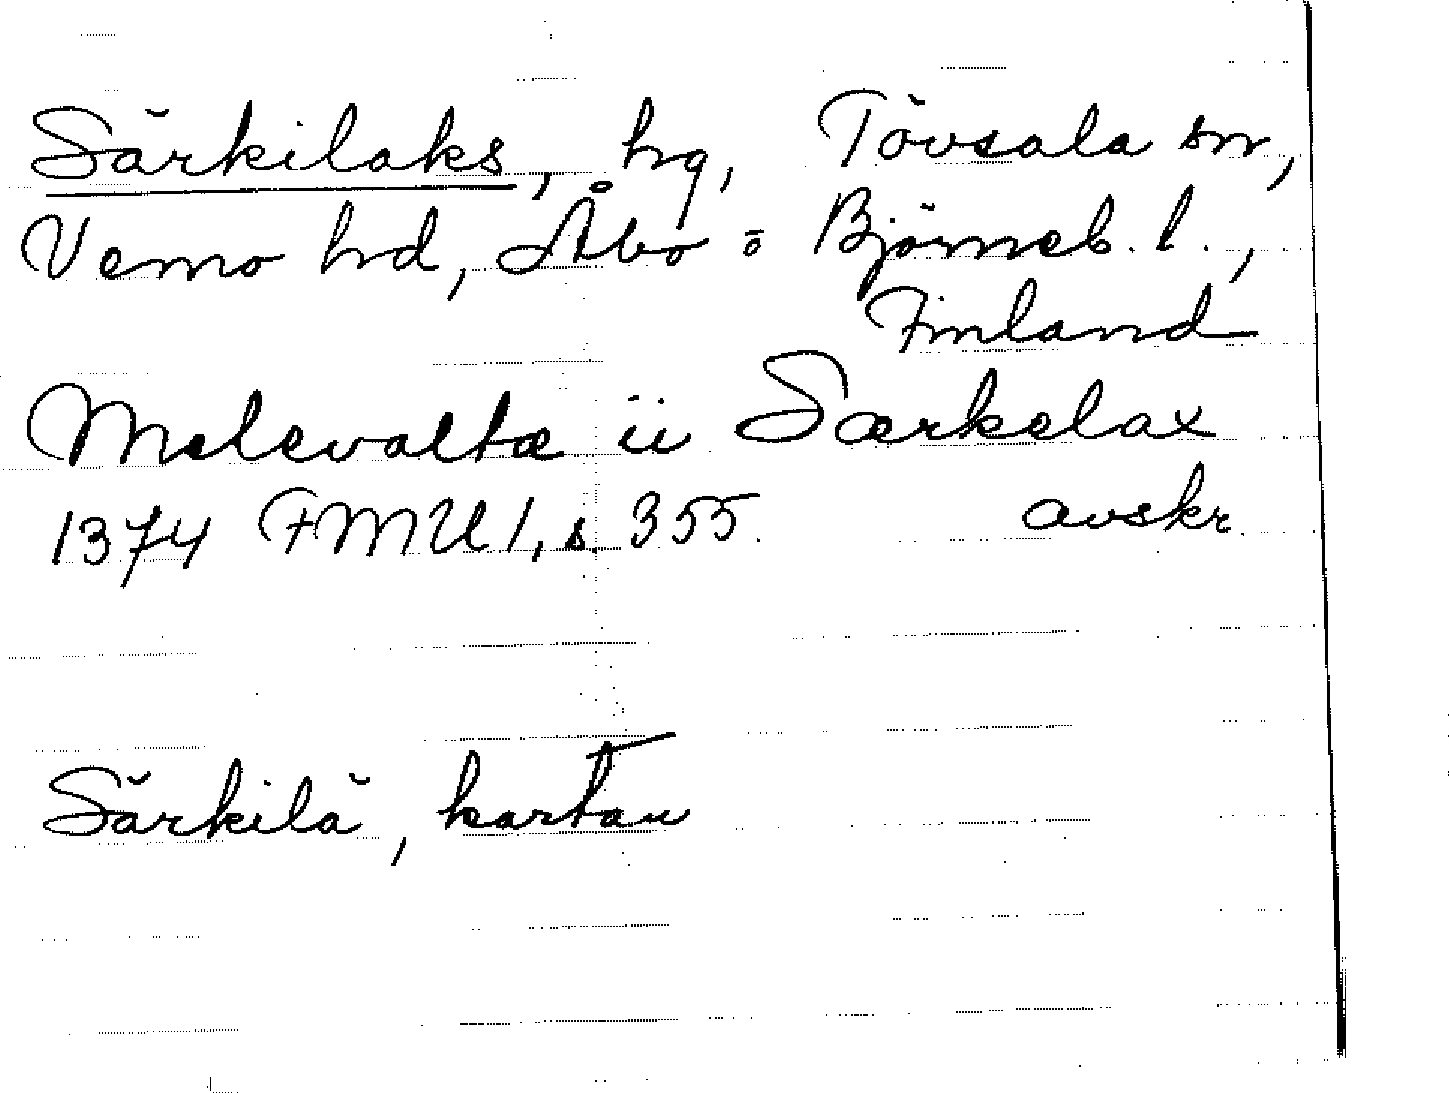 Särkilaks, hg, Tövsala sn,
Vemo hd, Åbo o Björneb. l.,
Finland
Melevaltæ ii Særkelax
1374 FMU 1, s. 355. avskr.
Särkilä, kartan